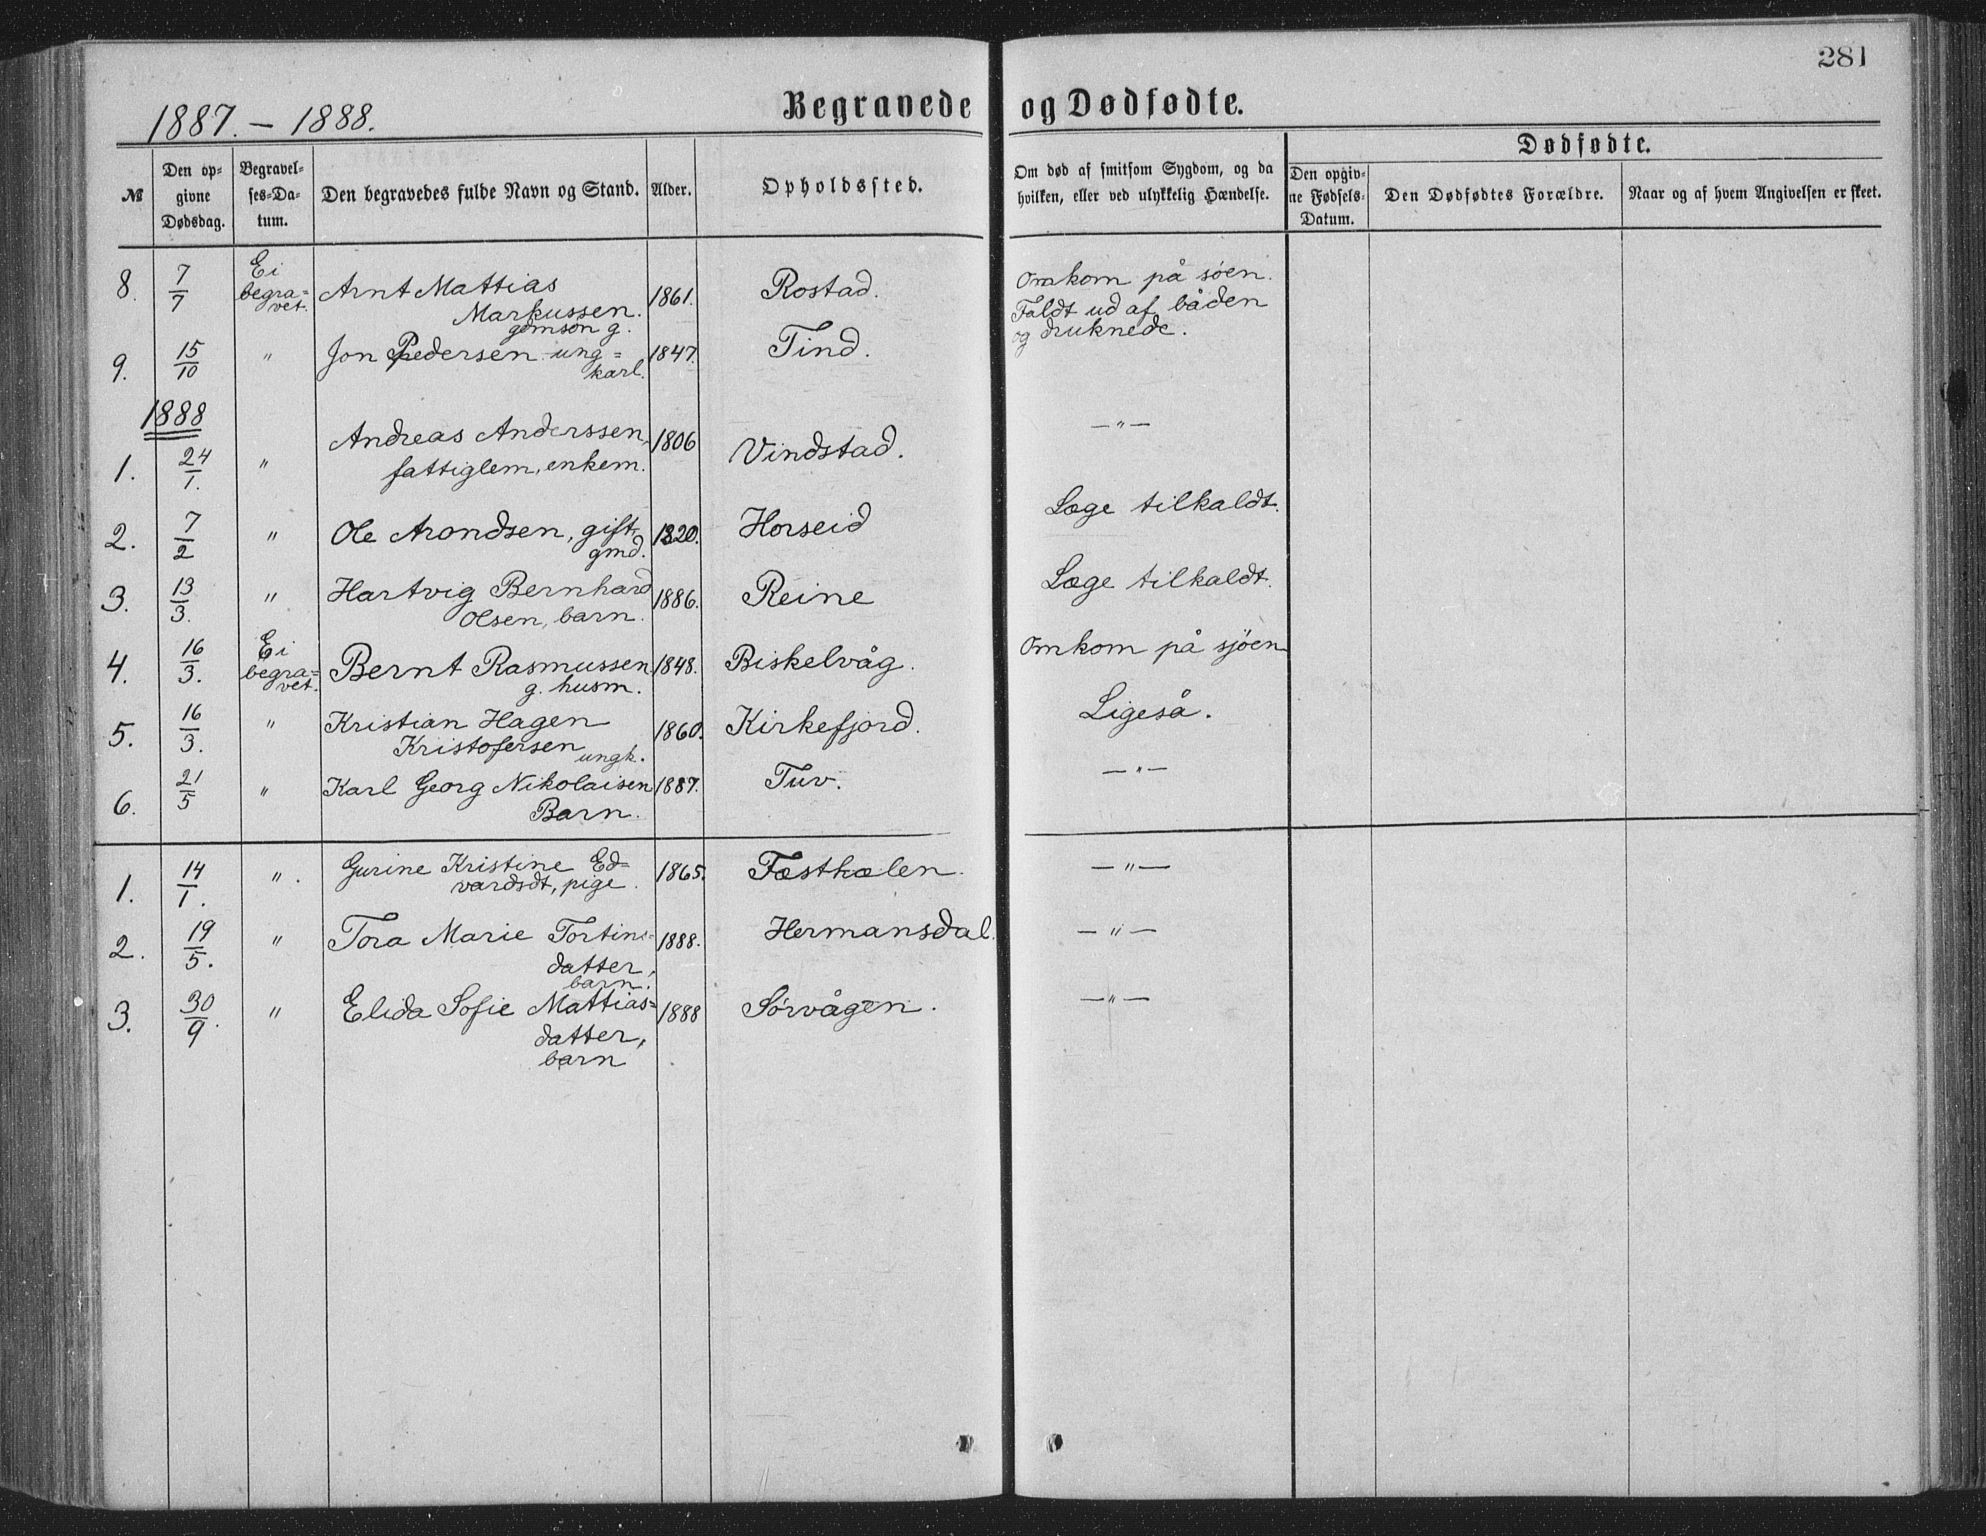 281
1887. – 1888.
Begravede og Dødfødte.
Dødfødte.
№
Den op-
givne
Dødsdag.
Begravel-
ses-Da-
tum.
Den begravedes fulde Navn og Stand.
Alder.
Opholdssted.
Om død af smitsom Sygdom, og da
hvilken, eller ved ulykkelig Hændelse.
Den opgiv-
ne Fødsels-
Datum.
Den Dødfødtes Forældre.
Naar og af hvem Angivelsen er skeet.
8. 7/7 Ei begra-vet. Arnt Mattias 1861. Rostad. Omkom på søen.
Markussen. Faldt ud af båden
gdmson g. og druknede.
9. 15/10 " Jon Pedersen ung- 1847. Tind.
karl.
1888
1. 24/1. " Andreas Anderssen, 1806 Vindstad. —"—
fattiglem, enkem.
2. 7/2 " Ole Arondsen, gift, 1820. Horseid Læge tilkaldt.
gmd.
3. 13/3. " Hartvig Bernhard 1886. Reine Læge tilkaldt.
Olsen, barn.
4. 16/3. Ei begra-vet. Bernt Rasmussen 1848. Biskelvåg. Omkom på sjøen
g. husm.
5. 16/3. " Kristian Hagen 1860. Kirkefjord. Ligeså.
Kristofersen
ungk.
6. 21/5 " Karl Georg Nikolaisen 1887. Tuv. —"—
Barn.
1. 14/1. ". Gurine Kristine Ed- 1865. Festhælen. —"—
vardsdt, pige.
2. 19/5. " Tora Marie Tortins- 1888. Hermansdal. —"—
datter,
barn.
3. 30/9. " Elida Sofie Mattias- 1888 Sørvågen. —"—
datter,
barn